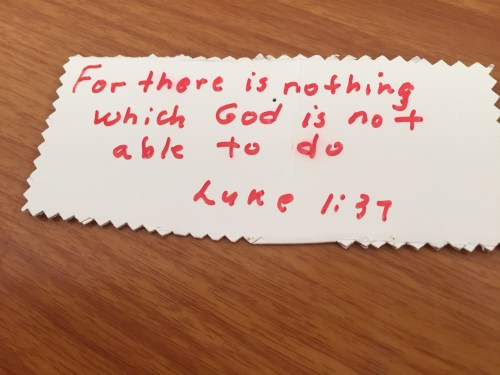 For there is nothing
which God is not
able to do
Luke 1:37